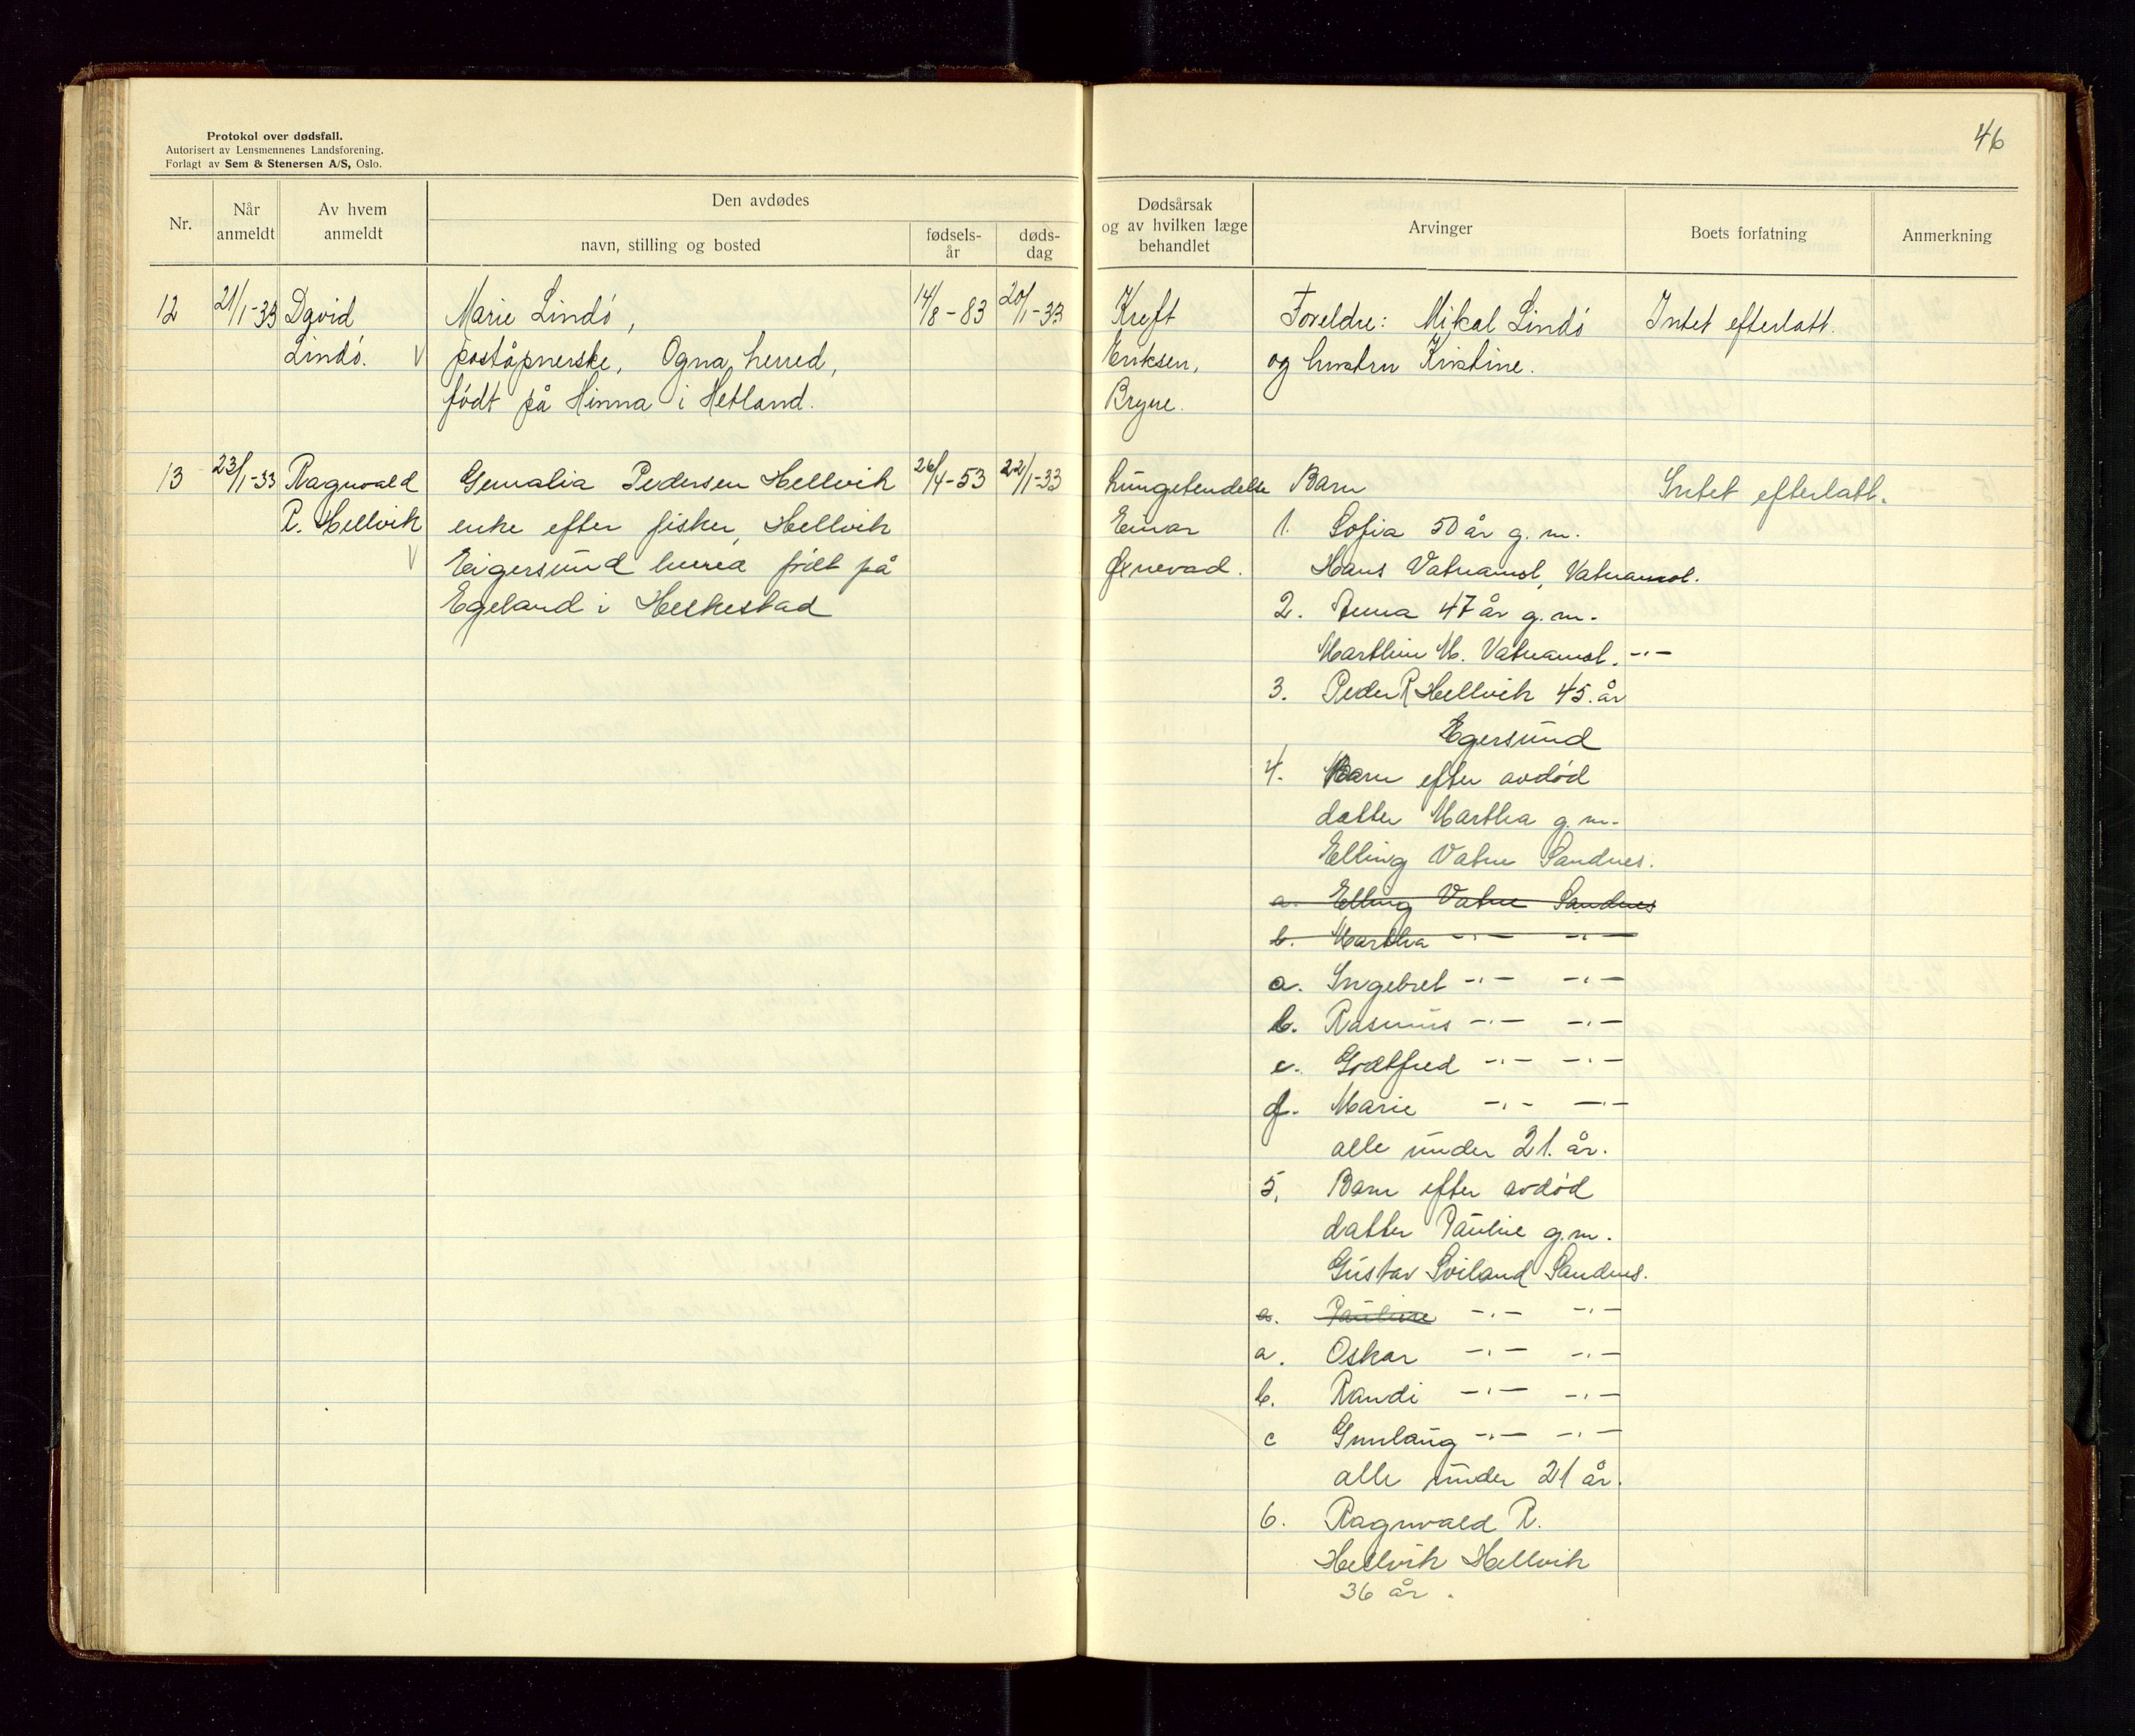 Protokol over dødsfall.
Autorisert av Lensmennenes Landsforening.
Forlagt av Sem & Stenersen A/S, Oslo.
46
Nr.
Når anmeldt
Av hvem anmeldt
Den avdødes
navn, stilling og bosted
fødsels-år
døds-dag
Dødsårsak og av hvilken læge behandlet
Arvinger
Boets forfatning
Anmerkning
12 21/1-33 David Marie Lindö, 14/8-83 20/1-33 Kreft Foreldre: Mikal Lindö Intet efterlatt.
Lindö. poståpnerske, Ogna herred, Eriksen, og hustru Kristine.
födt på Hinna i Hetland. Bryne.
13 23/1-33 Ragnvald Pedersen Hellvik 26/4-53 22/1-33 Lungebendelse Barn Intet efterlatt.
R. Hellvik enke efter fisker, Hellvik Einar 1. Sofia 50 år g. m.
Eigersund herred födt på Hans Vatnamot, Vatnamot.
Egeland i Heskestad
2. Anna 47 år g. m.
Marthin M. Vatnamot. -"-
3. Peder R Hellvik 45. år
Egersund
4. Barn efter avdöd
datter Martha g. m.
Elling Vatne Sandnes.
a. Elling Vatne Sandnes
b. Martha -"- -"-
a. Ingebret -"- -"-
b. Rasmus -"- -"-
c. Godtfred -"- -"-
d. Marie -"- -"-
alle under 21. år.
5. Barn efter avdöd
datter Pauline g. m.
Gustav Sviland Sandnes.
a. Pauline -"- -"-
a. Oskar -"- -"-
b. Randi -"- -"-
c Gunlaug -"- -"-
alle under 21 år.
6. Ragnvald R.
Hellvik Hellvik
36 år.